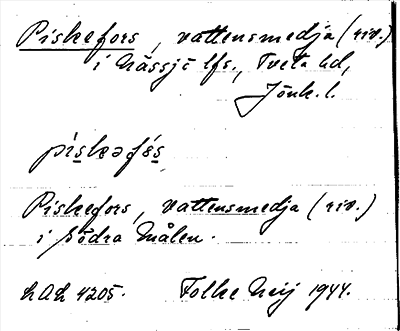 Piskefors, vattensmedja (riv.)
i Nässjö lfs., Tveta hd,
Jönk. l.
piskəfós
Piskefors, vattensmedja (riv.)
i Södra Målen.
LAL 4205. Folke Neij 1944.